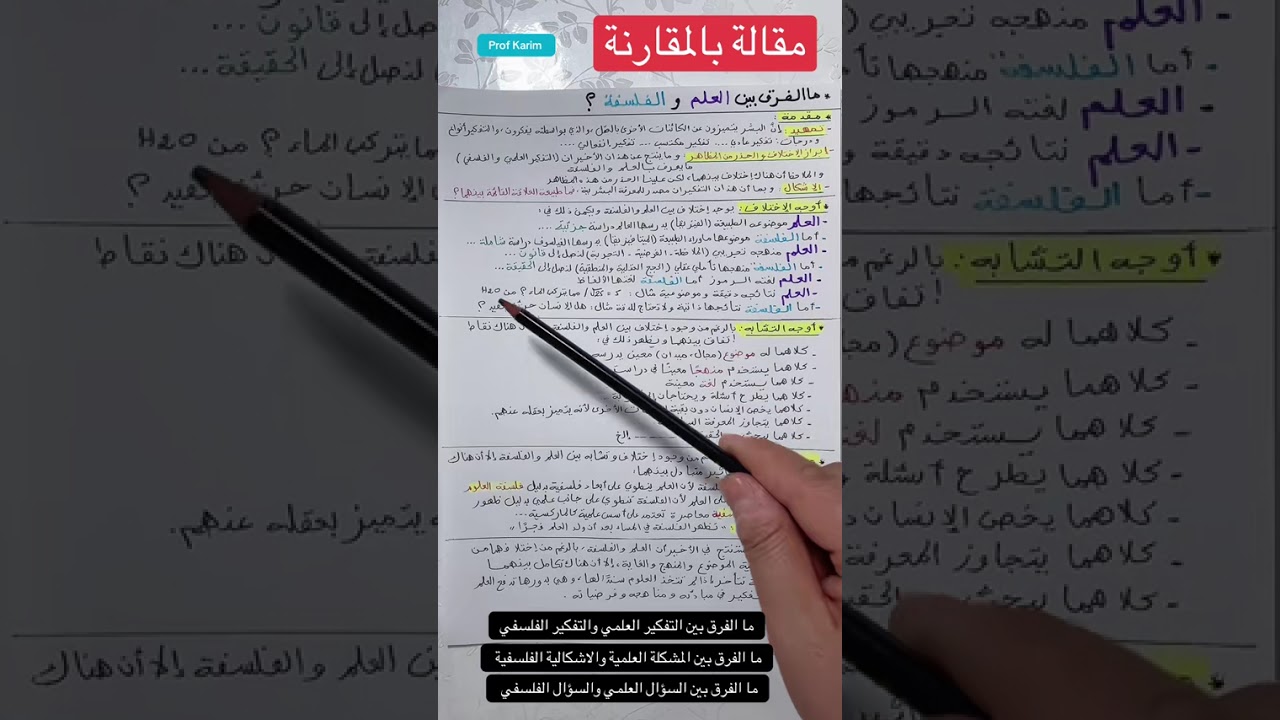 مقالة بالمقارنة
Prof Karim
* ما الفرق بين العلم و الفلسفة ؟
* مقدمة :
- تمهيد : إنّ البشر يتميزون عن الكائنات الأخرى بالعقل والذي بواسطته يفكرون، والتفكير أنواع
ودرجات : تفكير عادي ... تفكير مكتسب ... تفكير انفعالي ...
- إبراز الاختلاف والحذر من المظاهر : وما ينتج عن هذان الأخيران (التفكير العلمي والفلسفي)
ما يعرف بالعلم والفلسفة
والملاحظ أن هناك إختلاف بينهما، لكن علينا الحذر من هذه المظاهر
- الاشكال : وبما أن هذان التفكيران مصدر للمعرفة البشرية، فما طبيعة العلاقة القائمة بينهما؟
* أوجه الاختلاف : يوجد إختلاف بين العلم والفلسفة ويكمن ذلك في :
- العلم موضوعه الطبيعة (الفيزيقا) يدرسها العالم دراسة جزئية ...
- أما الفلسفة موضوعها ماوراء الطبيعة (الميتافيزيقا) يدرسها الفيلسوف دراسة شاملة ...
- العلم منهجه تجريبي (الملاحظة - الفرضية - التجربة) لنصل إلى قانون ...
- أما الفلسفة منهجها تأملي عقلي (الحجج العقلية والمنطقية) لنصل إلى الحقيقة ...
- العلم لغته الرموز أما الفلسفة لغتها الألفاظ
- العلم نتائجه دقيقة وموضوعية مثال : √25 = 5 / مما يتركب الماء؟ من H2O
- أما الفلسفة نتائجها ذاتية ولا تحتاج للدقة مثال : هل الانسان حر أم مقيد ؟
* أوجه التشابه : بالرغم من وجود إختلاف بين العلم والفلسفة هناك نقاط
إتفاق بينهما ويظهر ذلك في :
- كلاهما له موضوع (مجال، ميدان) معين يدرسه
- كلاهما يستخدم منهجًا معينًا في
- كلاهما يستخدم لغة معينة
- كلاهما يطرح أسئلة ويحتاجان
- كلاهما يخص الإنسان دون بقية الأخرى لأنه يتميز بعقله عنهم.
- كلاهما يتجاوز المعرفة
- كلاهما يبحث ... الخ
من وجود إختلاف وتشابه بين العلم والفلسفة إلا أن هناك
متبادل بينهما :
لأن العلم ينطوي على أبعاد فلسفية بدليل فلسفة العلوم
العلم لأن الفلسفة تنطوي على جانب علمي بدليل ظهور
معاصرة تعتمد على أسس علمية كالماركسية ...
" تظهر الفلسفة في المساء بعد أن ولد العلم فجرًا "
نستنتج في الأخير أن العلم والفلسفة، بالرغم من إختلافهما من
الموضوع والمنهج والغاية، إلا أن هناك تكامل بينهما
تتخذ العلوم سندًا لها، وهي بدورها تدفع العلم
في مبادئه ومناهجه وفرضياته.
ما الفرق بين التفكير العلمي والتفكير الفلسفي
ما الفرق بين المشكلة العلمية والاشكالية الفلسفية
ما الفرق بين السؤال العلمي والسؤال الفلسفي